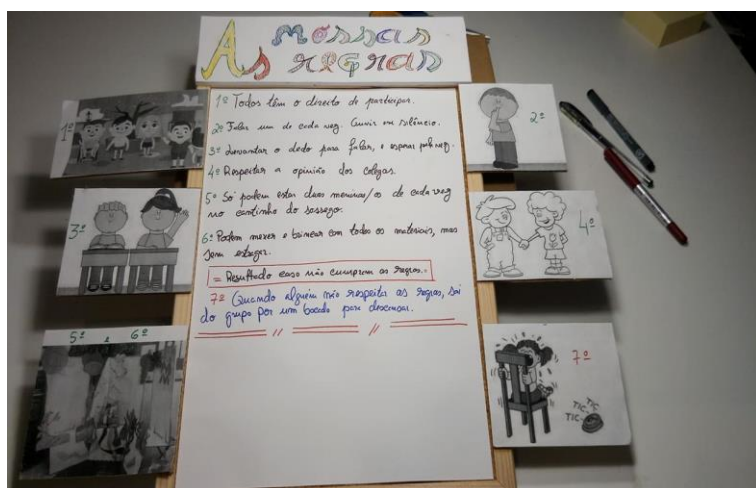 As nossas
regras
1º Todos têm o direito de participar.
2º Falar um de cada vez. Ouvir em silêncio.
3º Levantar o dedo para falar, e esperar pela vez.
4º Respeitar a opinião dos colegas.
5º Só podem estar duas meninas/os de cada vez
no cantinho do sossego.
6º Podem mexer e brincar com todos os materiais, mas
sem estragar.
= Resultado caso não cumpram as regras.=
7º Quando alguém não respeitar as regras, sai
do grupo por um bocado para descansar.
1º
2º
3º
4º
5º e 6º
7º
TIC
TIC
TIC